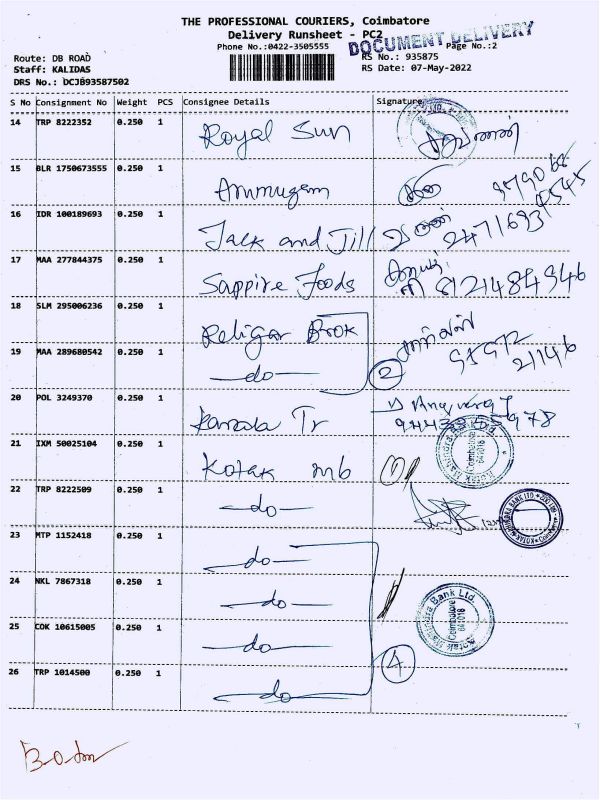 THE PROFESSIONAL COURIERS, Coimbatore
Delivery Runsheet - PC2
Phone No.:0422-3505555
DOCUMENT DELIVERY
Page No.:2
Route: DB ROAD
RS No.: 935875
Staff: KALIDAS
RS Date: 07-May-2022
DRS No.: DCJB93587502
S No Consignment No Weight PCS Consignee Details Signature
14 TRP 8222352 0.250 1 Royal Sun சரவணன்
15 BLR 1750673555 0.250 1 Arumugam
16 IDR 100189693 0.250 1 Jack and Jill
17 MAA 277844375 0.250 1 Sappire Foods 8121484946
18 SLM 295006236 0.250 1 Religar Brok
19 MAA 289680542 0.250 1 -do- 2
20 POL 3249370 0.250 1 Kamala Tr
21 IXM 50025104 0.250 1 Kotak mb
Coimbatore
641018
22 TRP 8222509 0.250 1 -do-
23 MTP 1152418 0.250 1 -do-
24 NKL 7867318 0.250 1 -do-
Kotak Mahindra Bank Ltd.
Coimbatore
641018
25 COK 10615005 0.250 1 -do-
26 TRP 1014500 0.250 1 -do- 4